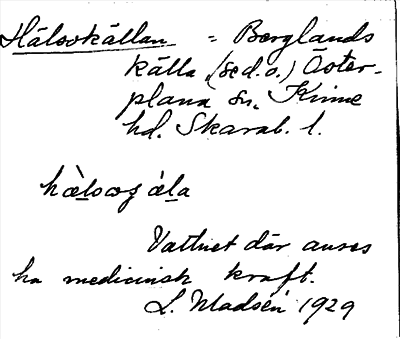 Hälsokällan = Berglands
källa (se d.o.) Öster-
plana sn, Kinne
hd. Skarab. l.
hàlsoçála
Vattnet där anses
ha medicinsk kraft.
L. Madsén 1929